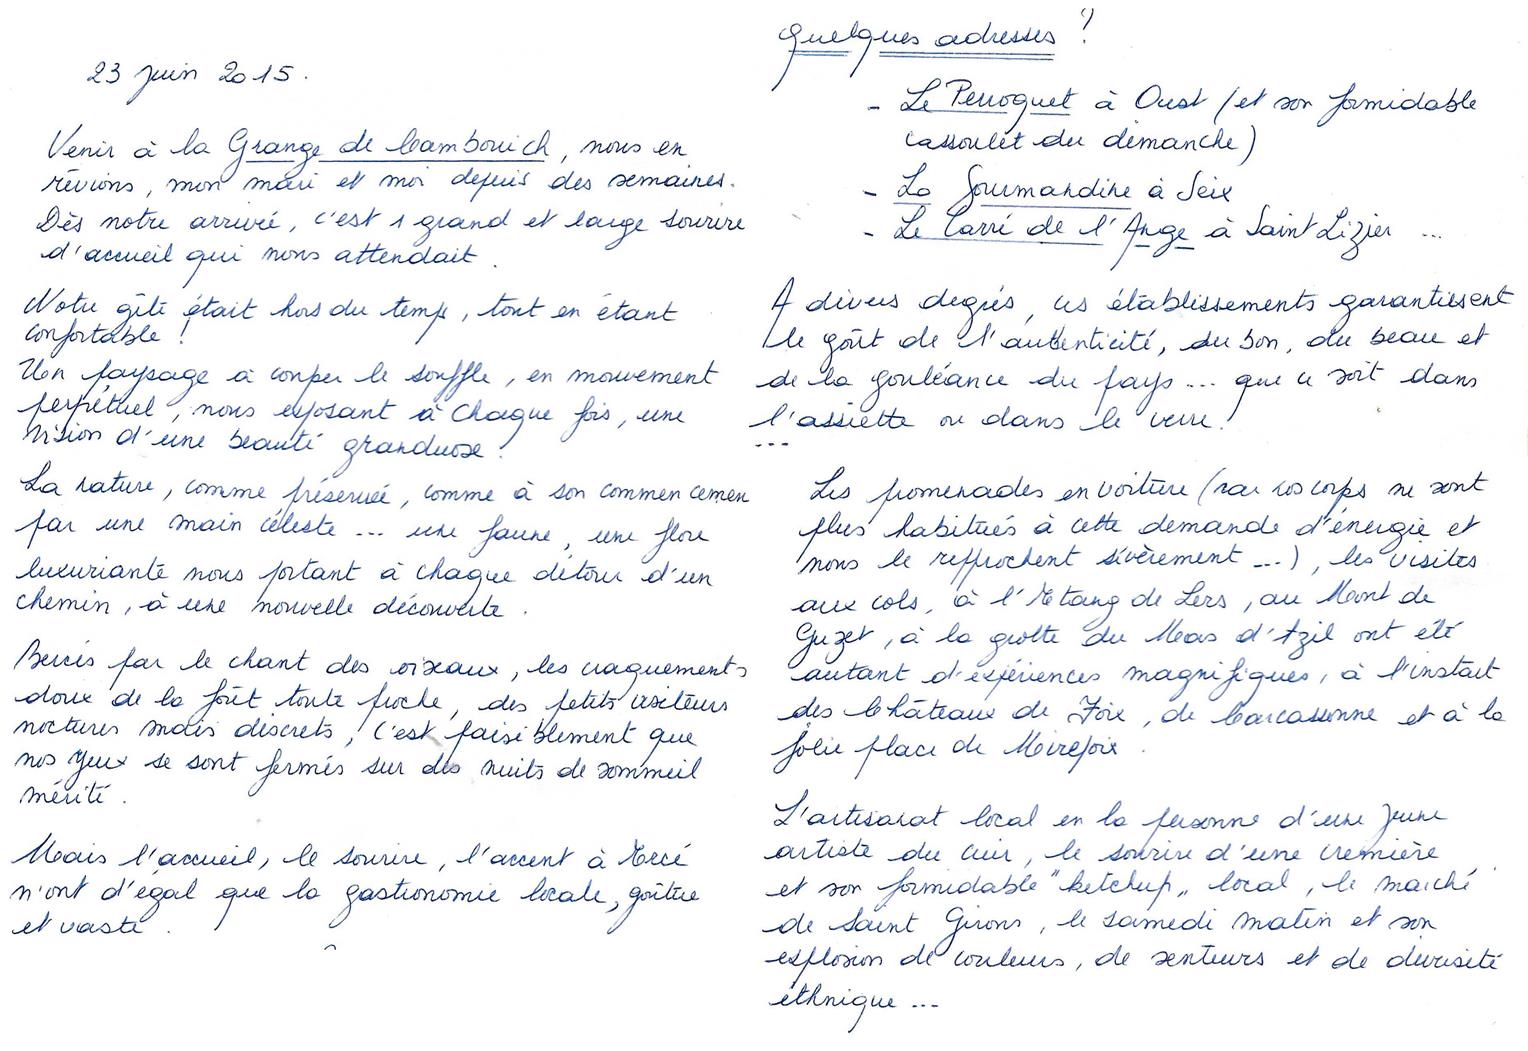 23 juin 2015.
Venir à la Grange de Cambouich, nous en
rêvions, mon mari et moi depuis des semaines.
Dès notre arrivée, c'est 1 grand et large sourire
d'accueil qui nous attendait.
Notre gîte était hors du temps, tout en étant
confortable !
Un paysage à couper le souffle, en mouvement
perpétuel, nous exposant à chaque fois, une
vision d'une beauté grandiose.
La nature, comme préservée, comme à son commencemen
par une main céleste ... une faune, une flore
luxuriante nous portant à chaque détour d'un
chemin, à une nouvelle découverte.
Bercés par le chant des oiseaux, les craquements
doux de la forêt toute proche, des petits visiteurs
noctures mais discrets, c'est paisiblement que
nos yeux se sont fermés sur des nuits de sommeil
mérité.
Mais l'accueil, le sourire, l'accent à Ercé
n'ont d'égal que la gastronomie locale, goûtue
et vaste.
Quelques adresses ?
- Le Perroquet à Oust (et son formidable
cassoulet du dimanche)
- La Gourmandine à Seix
- Le Carré de l'Ange à Saint Lizier ...
A divers degrés, ces établissements garantissent
le goût de l'authenticité, du bon, du beau et
de la gouléance du pays ... que ce soit dans
l'assiette ou dans le verre !
...
Les promenades en voiture (car nos corps ne sont
plus habitués à cette demande d'énergie et
nous le reprochent sévèrement ...), les visites
aux cols, à l'Etang de Lers, au Mont de
Guzet, à la grotte du Mas d'Azil ont été
autant d'expériences magnifiques, à l'instart
des Châteaux de Foix, de Carcassonne et à la
jolie place de Mirepoix.
L'artisanat local en la personne d'une jeune
artiste du cuir, le sourire d'une crémière
et son formidable "ketchup" local, le marché
de Saint Girons, le samedi matin et son
explosion de couleurs, de senteurs et de diversité
ethnique ...